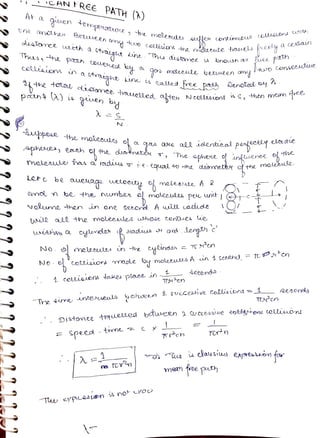 MEAN FREE PATH (λ)
At a given temperature, the molecules suffer continuous collisions with
one another. Between any two collisions the molecule travels freely a certain
distance with a straight line. This distance is known as free path
Thus, the path covered by a gas molecule between any two consecutive
collisions in a straight line is called free path. Denoted by λ.
If the total distance travelled after N collisions is S, then mean free
path (λ) is given by
λ = S
N
Suppose the molecules of a gas are all identical perfectly elastic
spheres, each of the diameter r, The sphere of influence of the
molecule has a radius r i.e. equal to the diameter of the molecule.
Let c be average velocity of molecule A &
and n be the number of molecules per unit
volume then in one second A will collide
will all the molecules whose centres lie
within a cylinder of radius r and length 'c'
No of molecules in the cylinder = πr²cn
No. of collisions made by molecules A in 1 second, = πr²cn
∴ 1 collisions takes place in 1 seconds
πr²cn
The time intervals between 2 successive collisions = 1 seconds
πr²cn
∴ Distance travelled between 2 successive collisions
= speed . time = c x 1 = 1
πr²cn πr²n
∴ λ = 1
πr²n
This is clausius expression for
mean free path
The expression is not